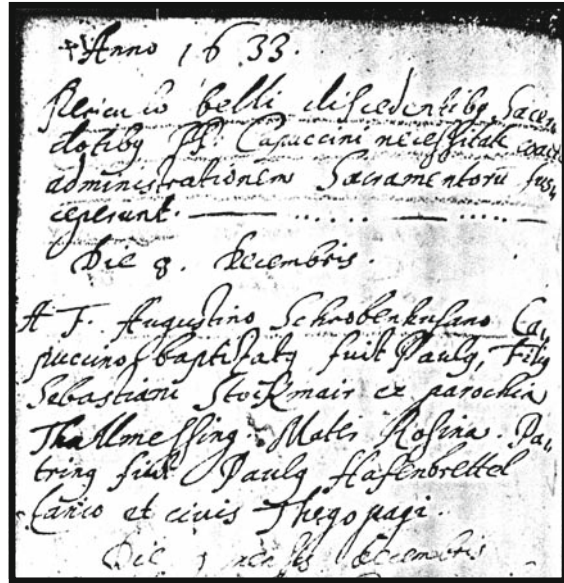 Anno 1633.
Periculo belli discedentibg Sacer„
dotibg PP. Capuccini necessitate coacti
administrationem Sacramentorū sus„
ceperunt. — ...... — ..... —
Die 8. Decembris.
A F. Augustino Schrobenhusano Ca„
puccino baptizatg fuit Paulg, Filig
Sebastiani Stockmair ex parochia
Thallmessing. Mater Rosina. Pa„
tring fuit Paulg Hafenbrettel
Lanio et civis
Die mensis Decembris